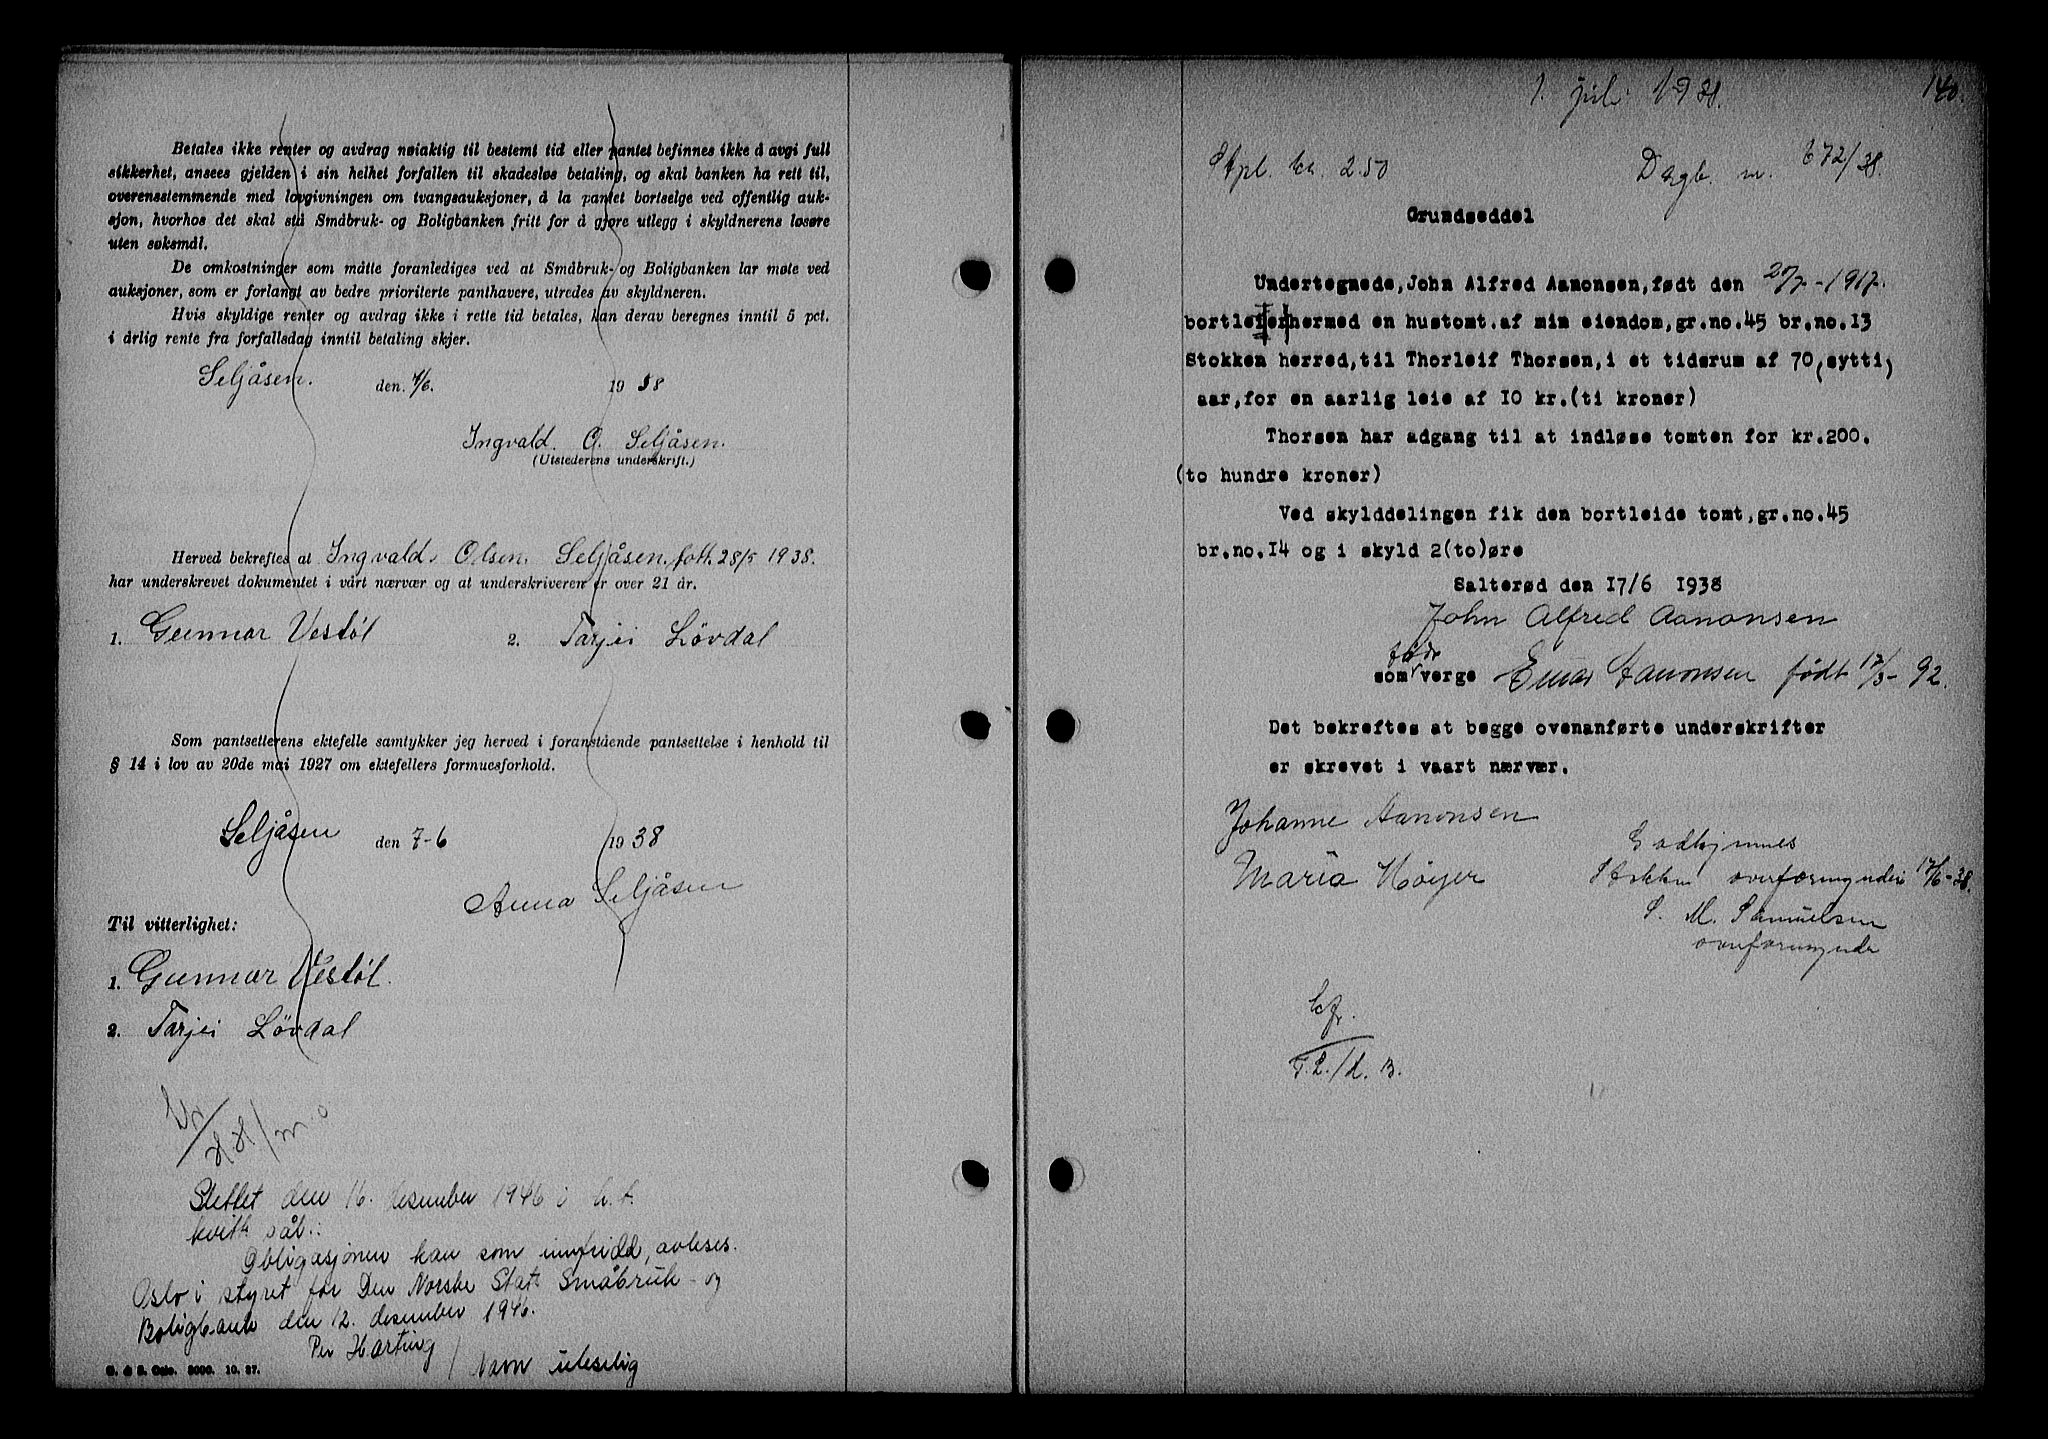 Betales ikke renter og avdrag nøiaktig til bestemt tid eller pantet befinnes ikke å avgi full
sikkerhet, ansees gjelden i sin helhet forfallen til skadesløs betaling, og skal banken ha rett til,
overensstemmende med lovgivningen om tvangsauksjoner, å la pantet bortselge ved offentlig auk-
sjon, hvorhos det skal stå Småbruk- og Boligbanken fritt for å gjøre utlegg i skyldnerens løsøre
uten søksmål.
De omkostninger som måtte foranlediges ved at Småbruk- og Boligbanken lar møte ved
auksjoner, som er forlangt av bedre prioriterte panthavere, utredes av skyldneren.
Hvis skyldige renter og avdrag ikke i rette tid betales, kan derav beregnes inntil 5 pct.
i årlig rente fra forfallsdag inntil betaling skjer.
Seljåsen. den. 7/6. 1938
Ingvald O. Seljåsen.
(Utstederens underskrift.)
Herved bekreftes at Ingvald Olsen Seljåsen, født 28/5 1938.
har underskrevet dokumentet i vårt nærvær og at underskriveren er over 21 år.
1. Gunnar Vestøl 2. Tarjei Lövdal
Som pantsetterens ektefelle samtykker jeg herved i foranstående pantsettelse i henhold til
§ 14 i lov av 20de mai 1927 om ektefellers formuesforhold.
Seljåsen den 7-6 1938
Anna Seljåsen
Til vitterlighet:
1. Gunnar Vestøl.
2. Tarjei Lövdal
Slettet den 16. desember 1946 i h. t.
kvitt. sål.:
Obligasjonen kan som innfridd, avleses.
Oslo i styret for Den Norske Stats Småbruk- og
Boligbank den 12. desember 1946.
Per Hartvig / Navn uleselig
1. juli 1938. 140.
Stpl. kr. 2.50 Dagb. nr. 672/38.
Grundseddel
Undertegnede, John Alfred Aanonsen, født den 27/7-1917.
bortleier hermed en hustomt. af min eiendom, gr.no.45 br.no.13
Stokken herred, til Thorleif Thorsen, i et tidsrum af 70 (sytti)
aar, for en aarlig leie af 10 kr.(ti kroner)
Thorsen har adgang til at indløse tomten for kr.200.
(to hundre kroner)
Ved skylddelingen fik den bortleide tomt, gr.no.45
br.no.14 og i skyld 2(to)øre
Salterød den 17/6 1938
John Alfred Aanonsen
som verge Einar Aanonsen født 17/3-92.
Det bekreftes at begge ovenanførte underskrifter
er skrevet i vaart nærvær.
Johanne Aanonsen
Maria Höyer
Godkjennes
Stokken overformynderi 17/6-38.
S. M. Samuelsen
overformynder